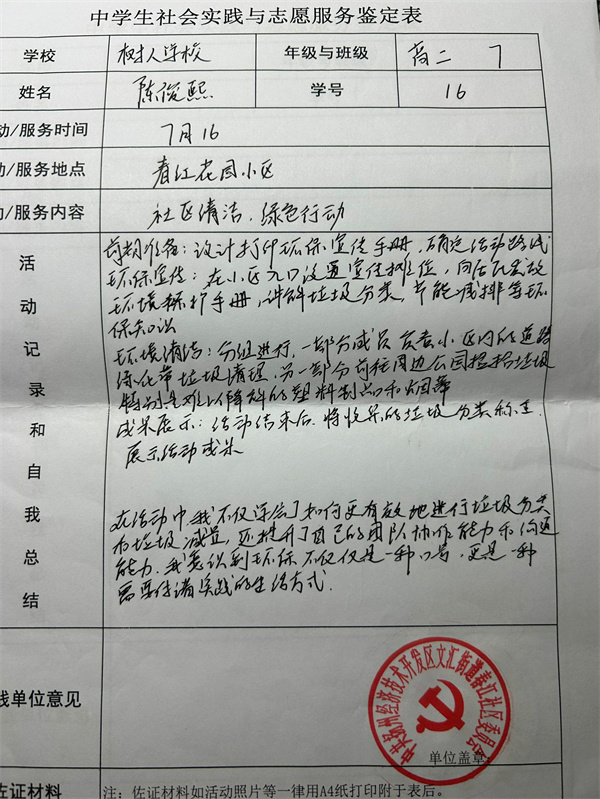 中学生社会实践与志愿服务鉴定表
学校 树人学校 年级与班级 高二 7
姓名 陈俊熙 学号 16
动/服务时间 7月16
动/服务地点 春江花园小区
动/服务内容 社区清洁,绿色行动
活动记录和自我总结
前期准备:设计打印环保宣传手册,确定活动路线
环保宣传:在小区入口设置宣传摊位,向居民发放
环境保护手册,讲解垃圾分类、节能减排等环
保知识
环境清洁:分组进行,一部分成员负责小区内的道路
绿化带垃圾清理,另一部分前往周边公园捡拾垃圾
特别是难以降解的塑料制品和烟蒂
成果展示:活动结束后,将收集的垃圾分类称重
展示活动成果
在活动中,我不仅学会了如何更有效地进行垃圾分类
和垃圾减量,还提升了自己的团队协作能力和沟通
能力.我意识到环保不仅仅是一种口号,更是一种
需要付诸实践的生活方式.
践单位意见
中共扬州经济技术开发区文汇街道春江社区委员会
单位盖章
佐证材料 注:佐证材料如活动照片等一律用A4纸打印附于表后。